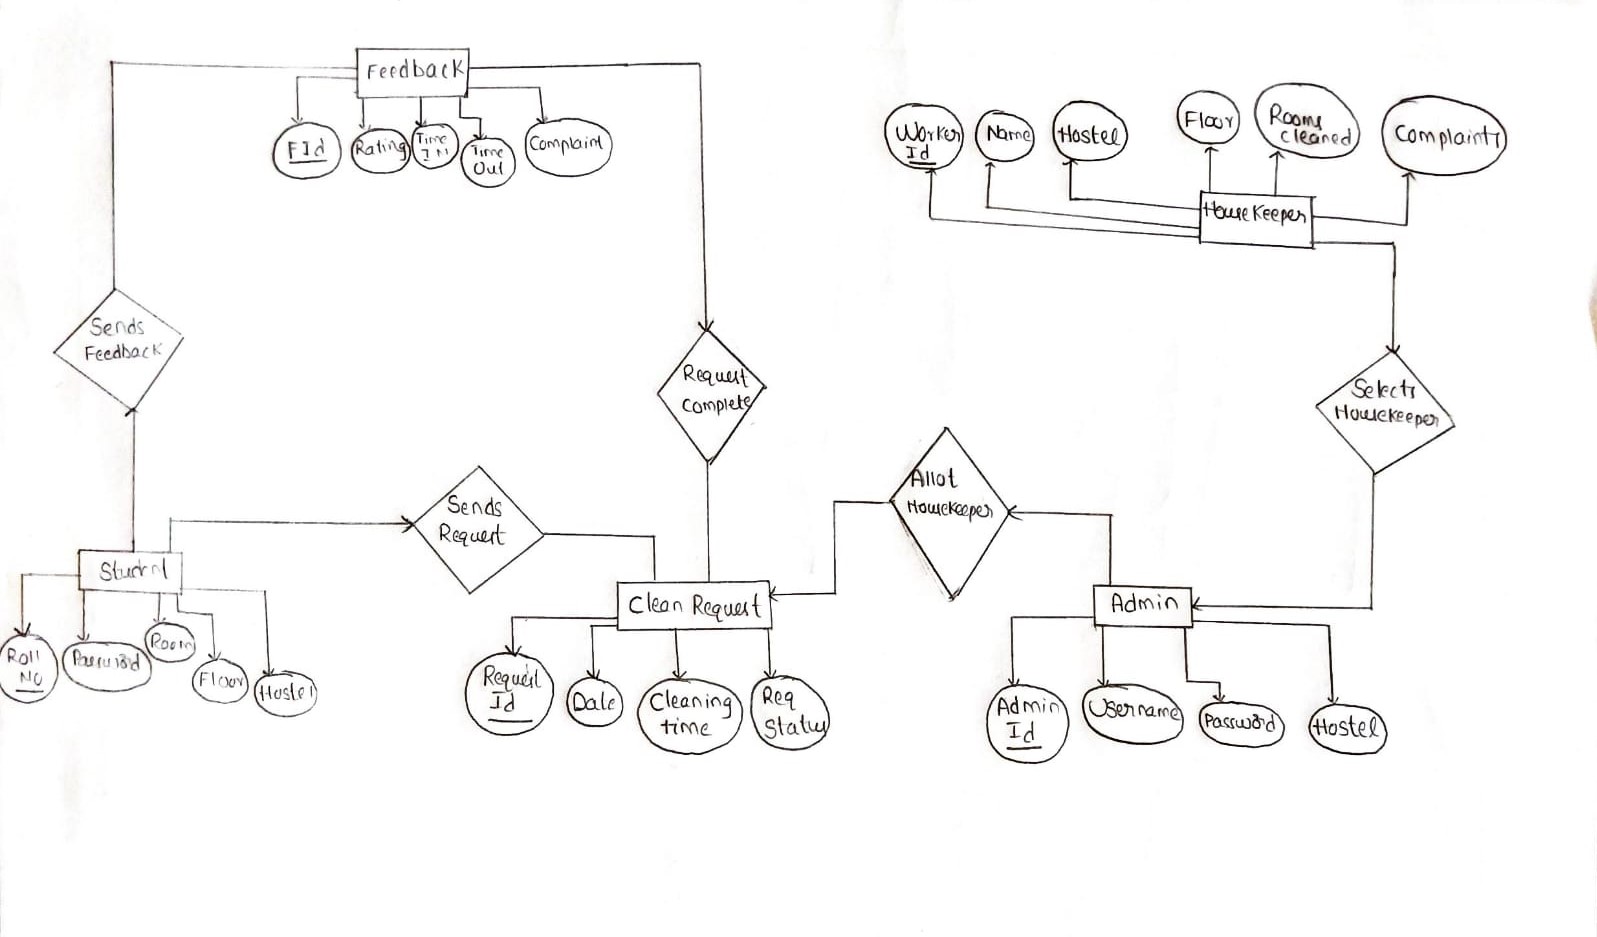 Feedback
FId
Rating
Time
IN
Time
Out
Complaint
Worker
Id
Name
Hostel
Floor
Rooms
Cleaned
Complaints
HouseKeeper
Sends
Feedback
Request
Complete
Selects
Housekeeper
Sends
Request
Allot
Housekeeper
Student
Roll
No
Password
Room
Floor
Hostel
Clean Request
Request
Id
Date
Cleaning
time
Req
Status
Admin
Admin
Id
Username
Password
Hostel